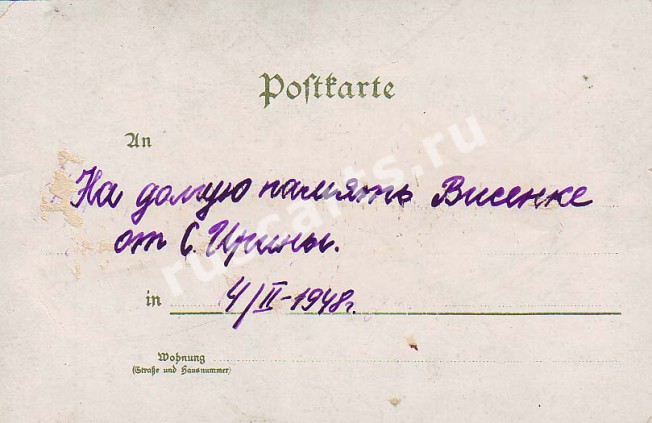 Postkarte
An
На долгую память Висенке
от С. Ирины.
in 4/II-1948г.
Wohnung
(Straße und Hausnummer)
rusarts.ru